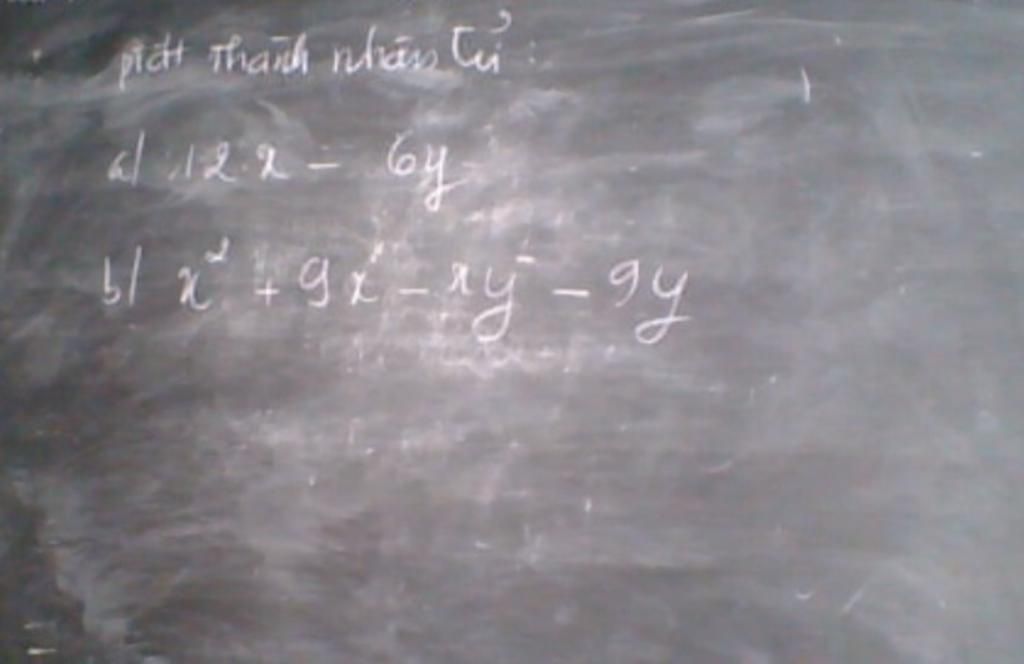 ptđt thành nhân tử :
a/ 12x - 6y
b/ x² + 9x - xy - 9y